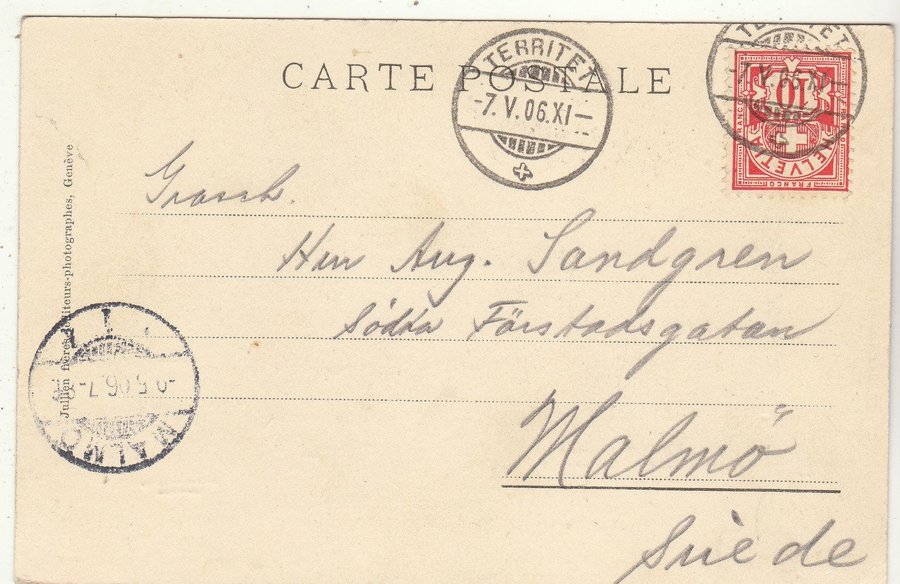 CARTE POSTALE
TERRITET
-7.V.06.XI-
TERRITET
7.V.06.XI
10
HELVETIA
FRANCO
FRANCO
FRANCO
Jullien frères, éditeurs-photographes, Genève
Herr Aug. Sandgren
Södra Förstadsgatan
Malmö
Suède
MALMÖ